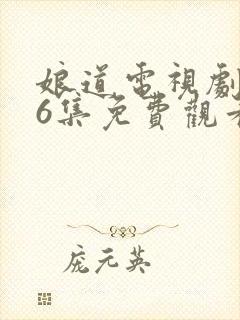 娘道電視劇
6集免費觀看
庞元英